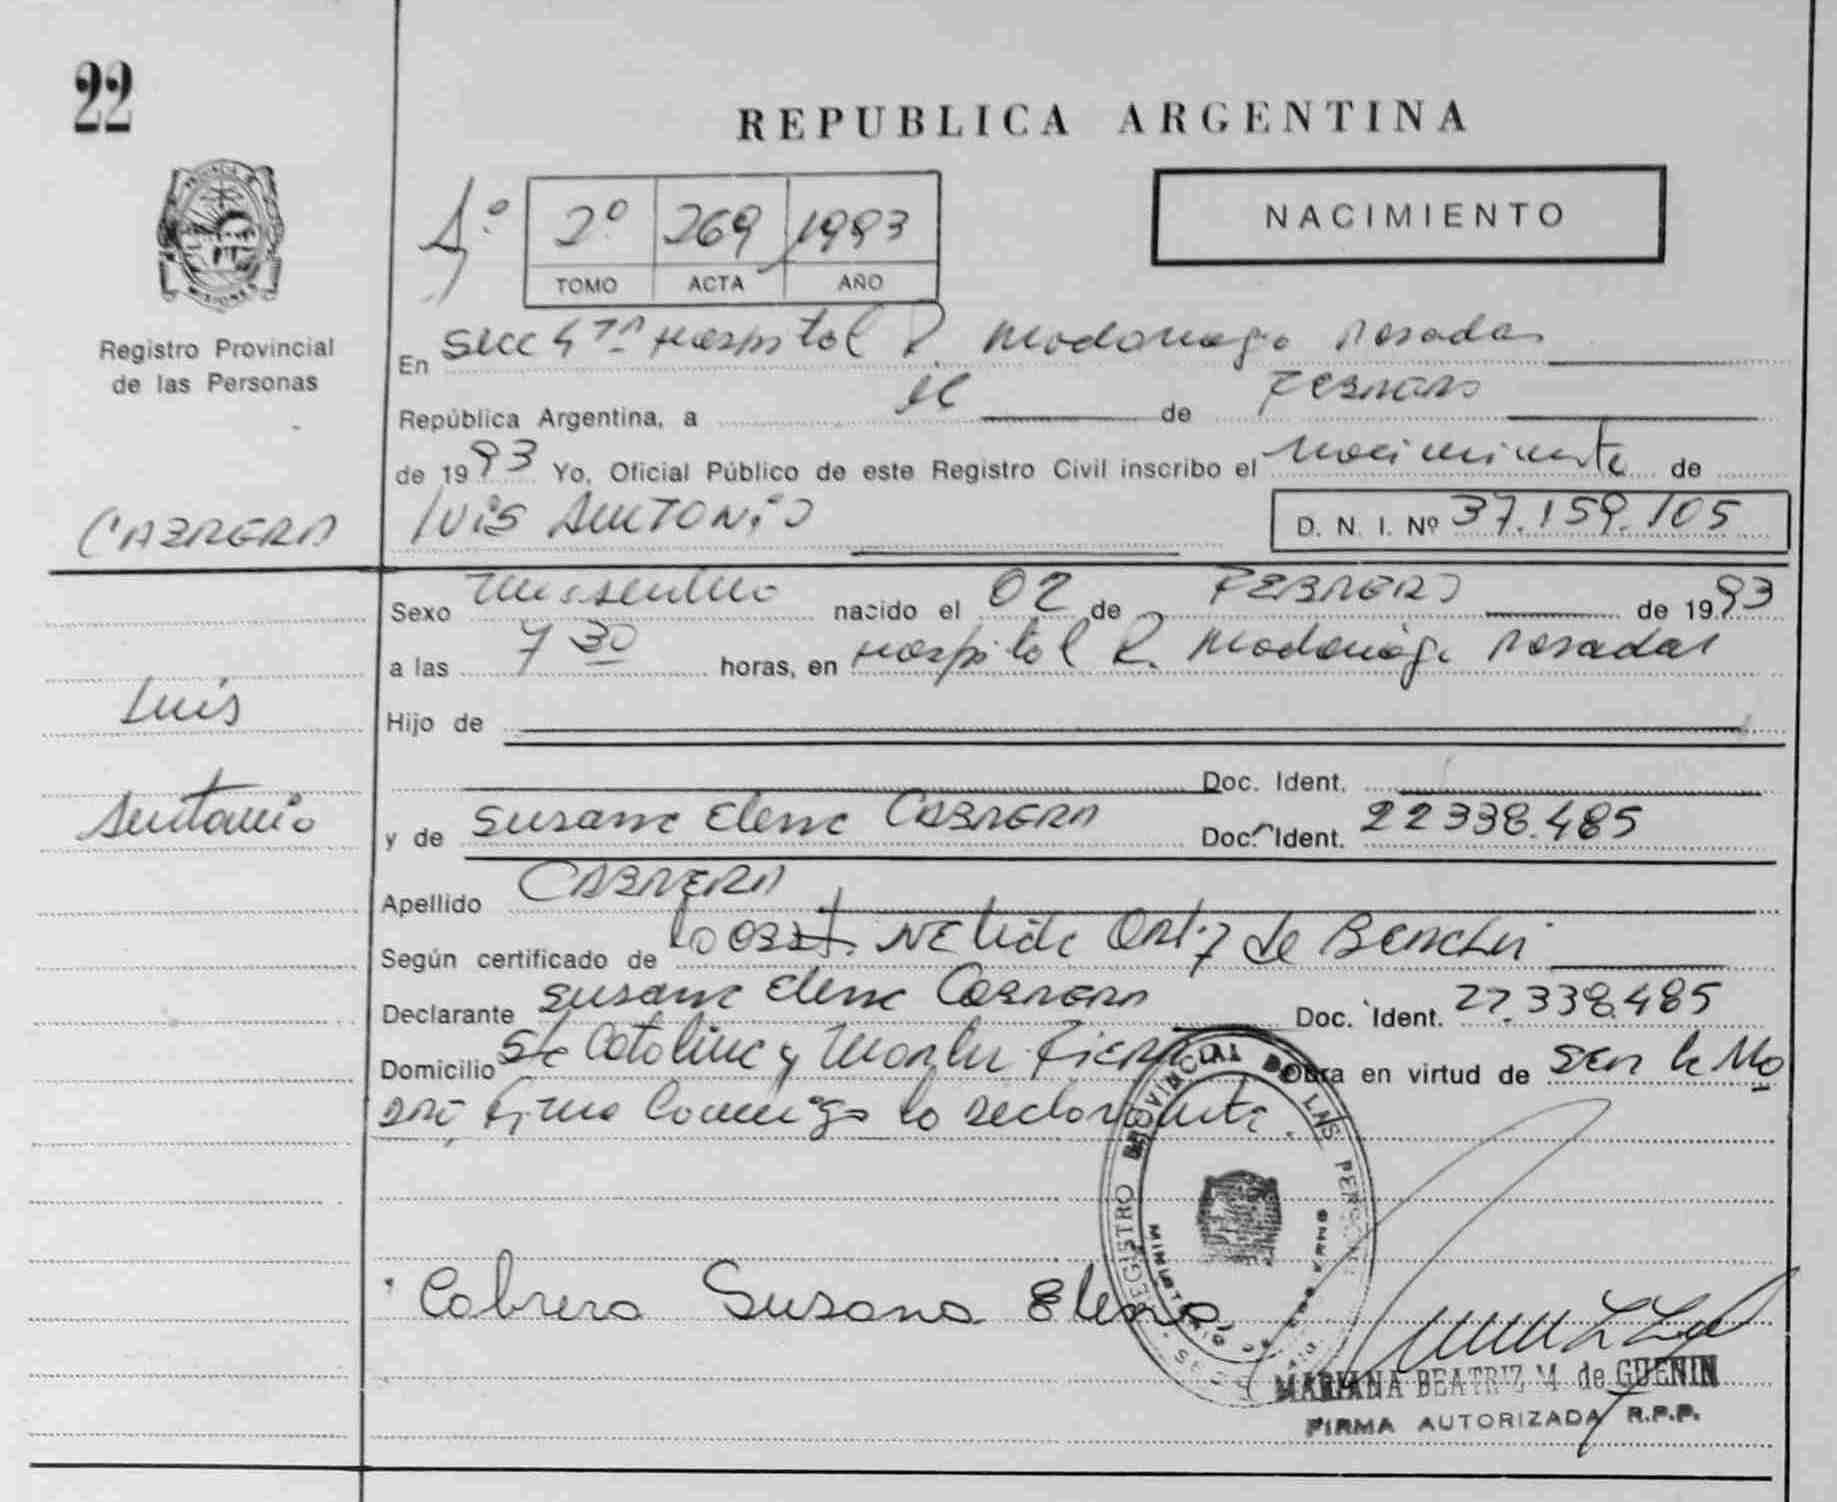 22
REPUBLICA ARGENTINA
2º 269 1993
TOMO ACTA AÑO
NACIMIENTO
PROVINCIA DE MISIONES
Registro Provincial
de las Personas
En Secc Hospital R. Madariaga Posadas
República Argentina, a de FEBRERO
de 1993 Yo, Oficial Público de este Registro Civil inscribo el Nacimiento de
CABRERA LUIS ANTONIO D. N. I. Nº 37.159.105
Sexo masculino nacido el 02 de FEBRERO de 1993
a las 7 30 horas, en Hospital R. Madariaga Posadas
Luis
Hijo de
Doc. Ident.
Antonio
y de Susana Elena CABRERA Doc. Ident. 22338.485
Apellido CABRERA
Según certificado de la obst. Nelida Ortiz de
Declarante Susana Elena CABRERA Doc. Ident. 22.338.485
Domicilio Sta Catalina y Obra en virtud de ser la Ma
dre, firma conmigo la declarante.
Cabrera Susana Elena
REGISTRO PROVINCIAL DE LAS PERSONAS
MINISTERIO DE GOBIERNO
MARIANA BEATRIZ M. de GUENIN
FIRMA AUTORIZADA R.P.P.